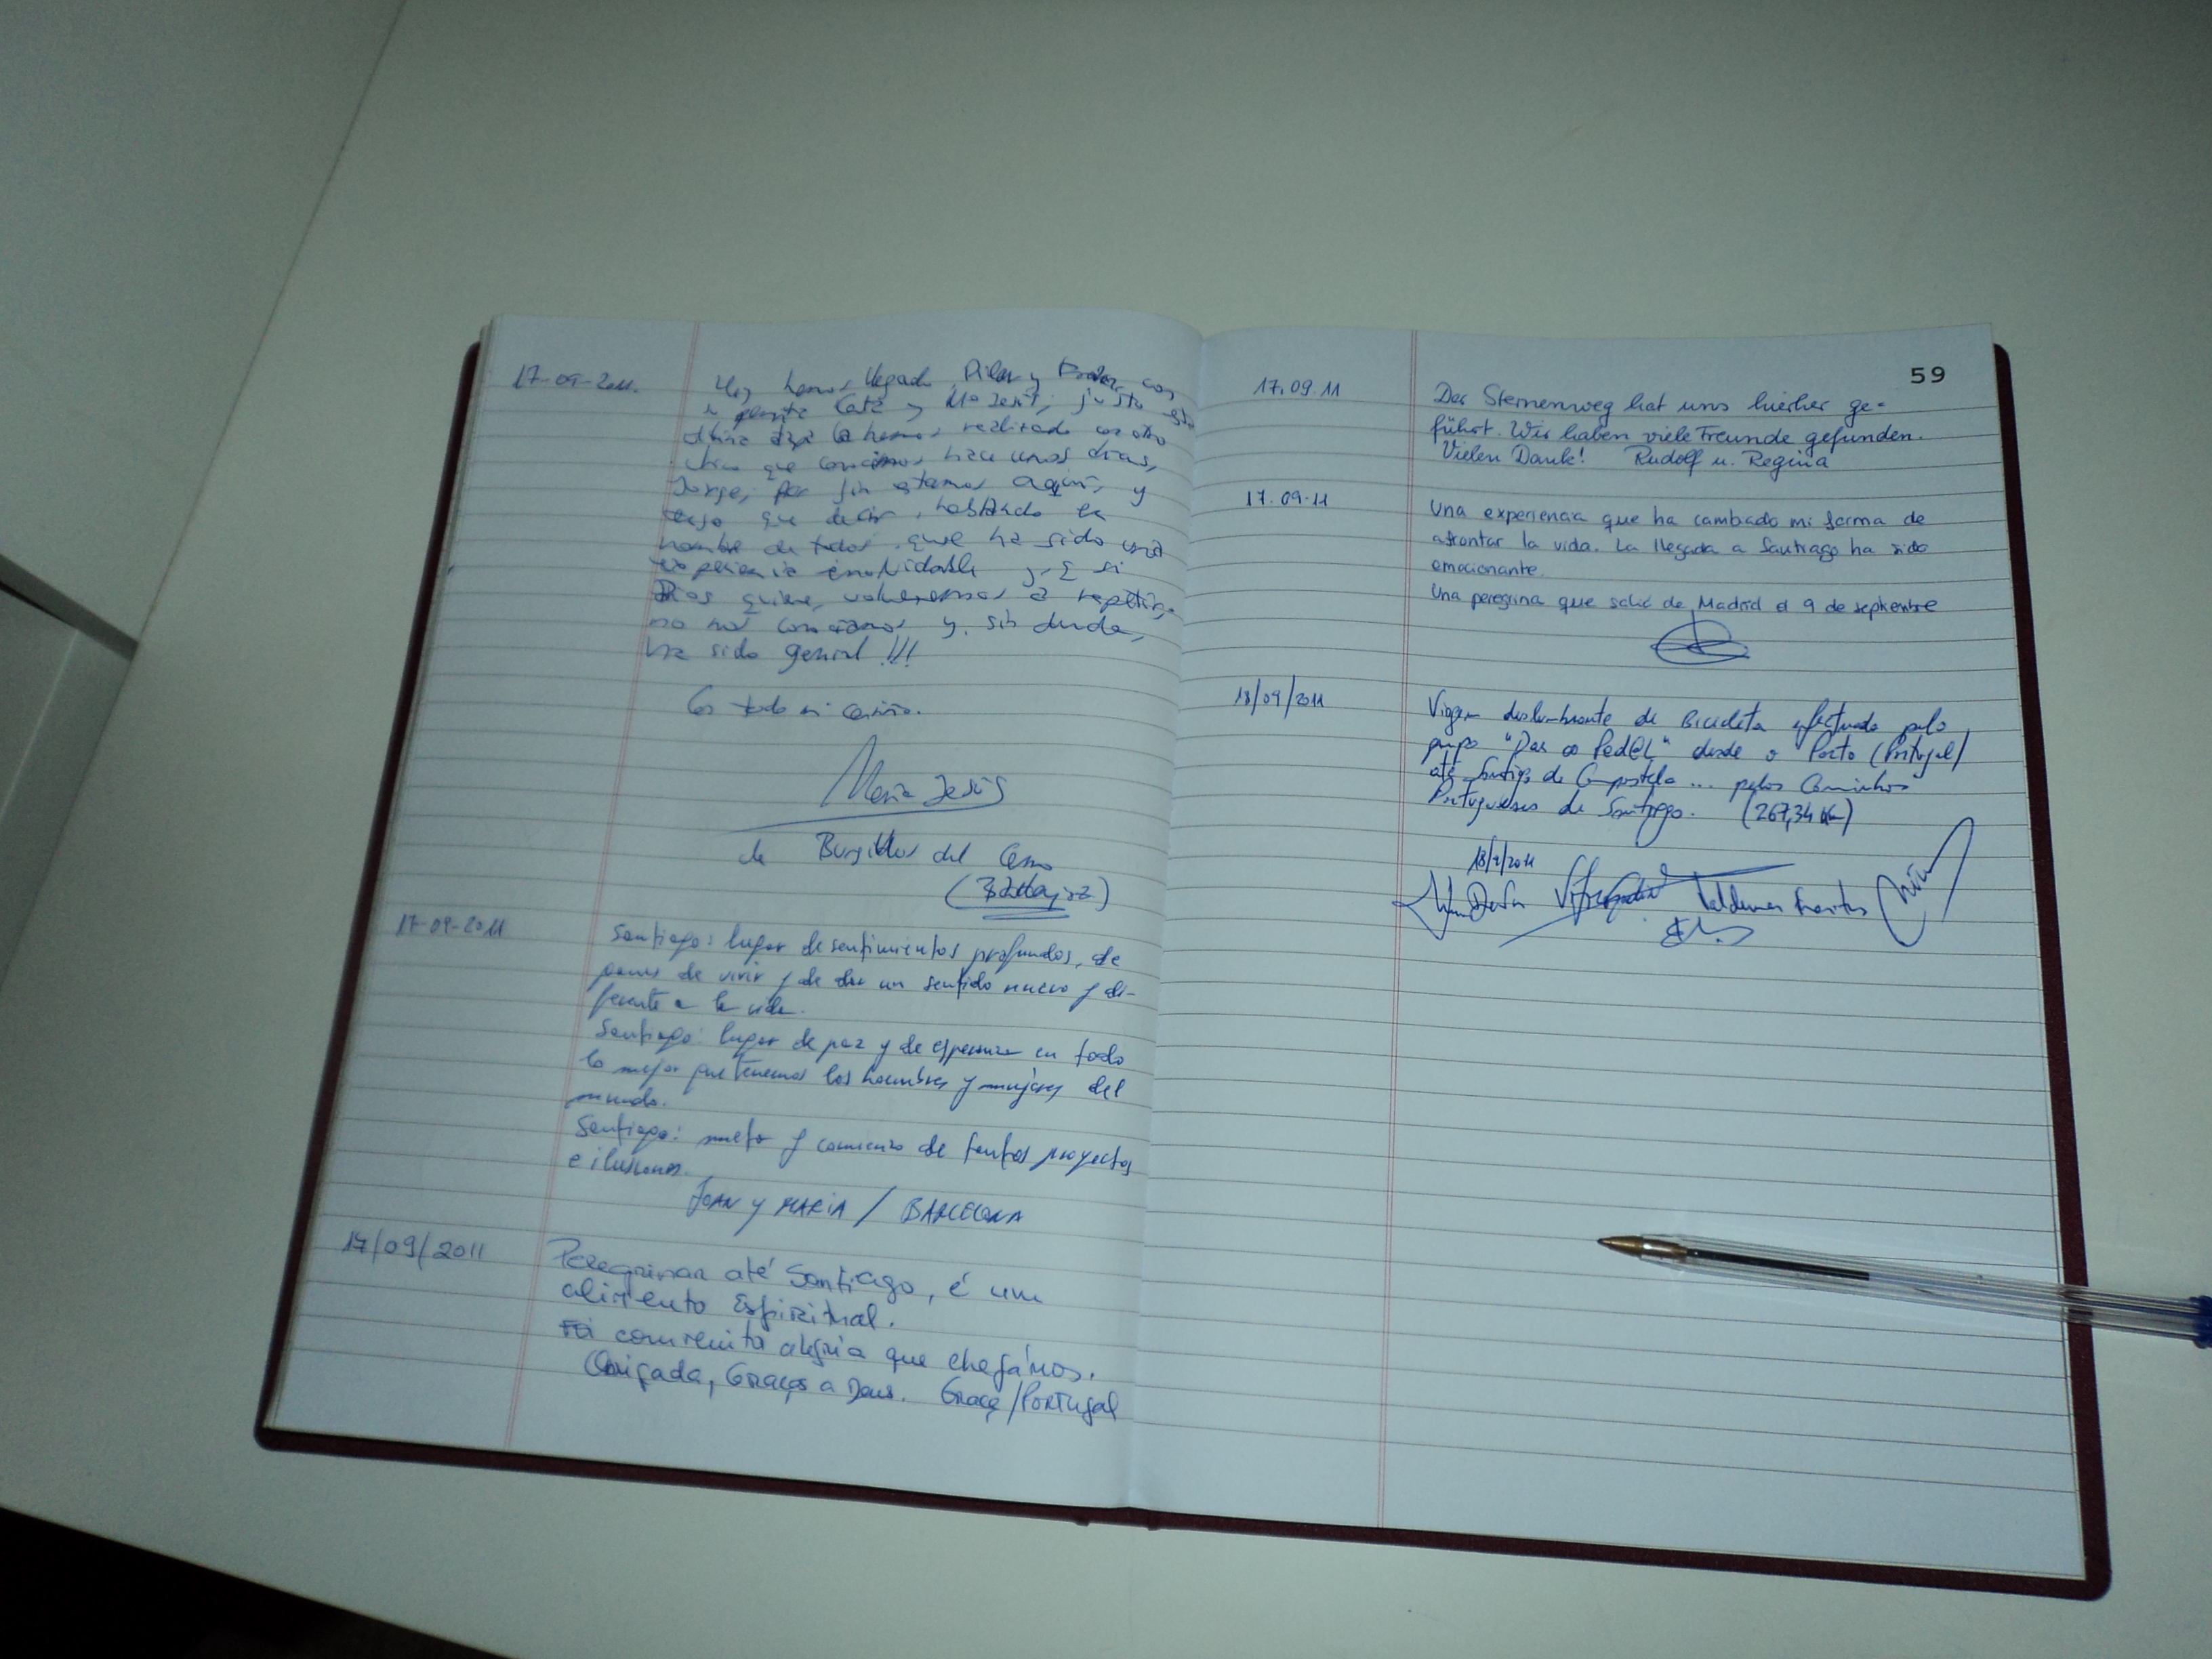 17-09-2011.
Hoy hemos llegado Pilar y con
Caté y Mª Jesús, justo esta
la hemos realizado con otro
chico que conocimos hace unos días,
Jorge, por fin estamos aquí, y
tengo que decir, hablando en
nombre de todos, que ha sido una
experiencia inolvidable y si
Dios quiere, volveremos a repetir,
no nos conocíamos y, sin duda,
ha sido genial!!!
Con todo mi cariño.
María Jesús
de Burguillos del Cerro
(Badajoz)
17-09-2011
Santiago: lugar de sentimientos profundos, de
ganas de vivir y de dar un sentido nuevo y di-
ferente a la vida.
Santiago: lugar de paz y de esperanza en todo
lo mejor que tenemos los hombres y mujeres del
mundo.
Santiago: meta y comienzo de tantos proyectos
e ilusiones.
JOAN y MARIA / BARCELONA
17/09/2011
Peregrinar até Santiago, é um
alimento Espiritual.
Foi com muita alegria que chegámos.
Obrigada, Graças a Deus. Graça/PORTUGAL
59
17.09 11
Der Sternenweg hat uns hierher ge-
führt. Wir haben viele Freunde gefunden.
Vielen Dank! Rudolf u. Regina
17.09.11
Una experiencia que ha cambado mi forma de
afrontar la vida. La llegada a Santiago ha sido
emocionante.
Una peregrina que salió de Madrid el 9 de septiembre
18/09/2011
Viagem deslumbrante de Bicicleta efectuada pelo
grupo "Dar ao Ped@L" desde o Porto (Portugal)
até Santiago de Compostela... pelos Caminhos
Portugueses de Santiago. (267,34 km)
18/9/2011
Valdemar Freitas